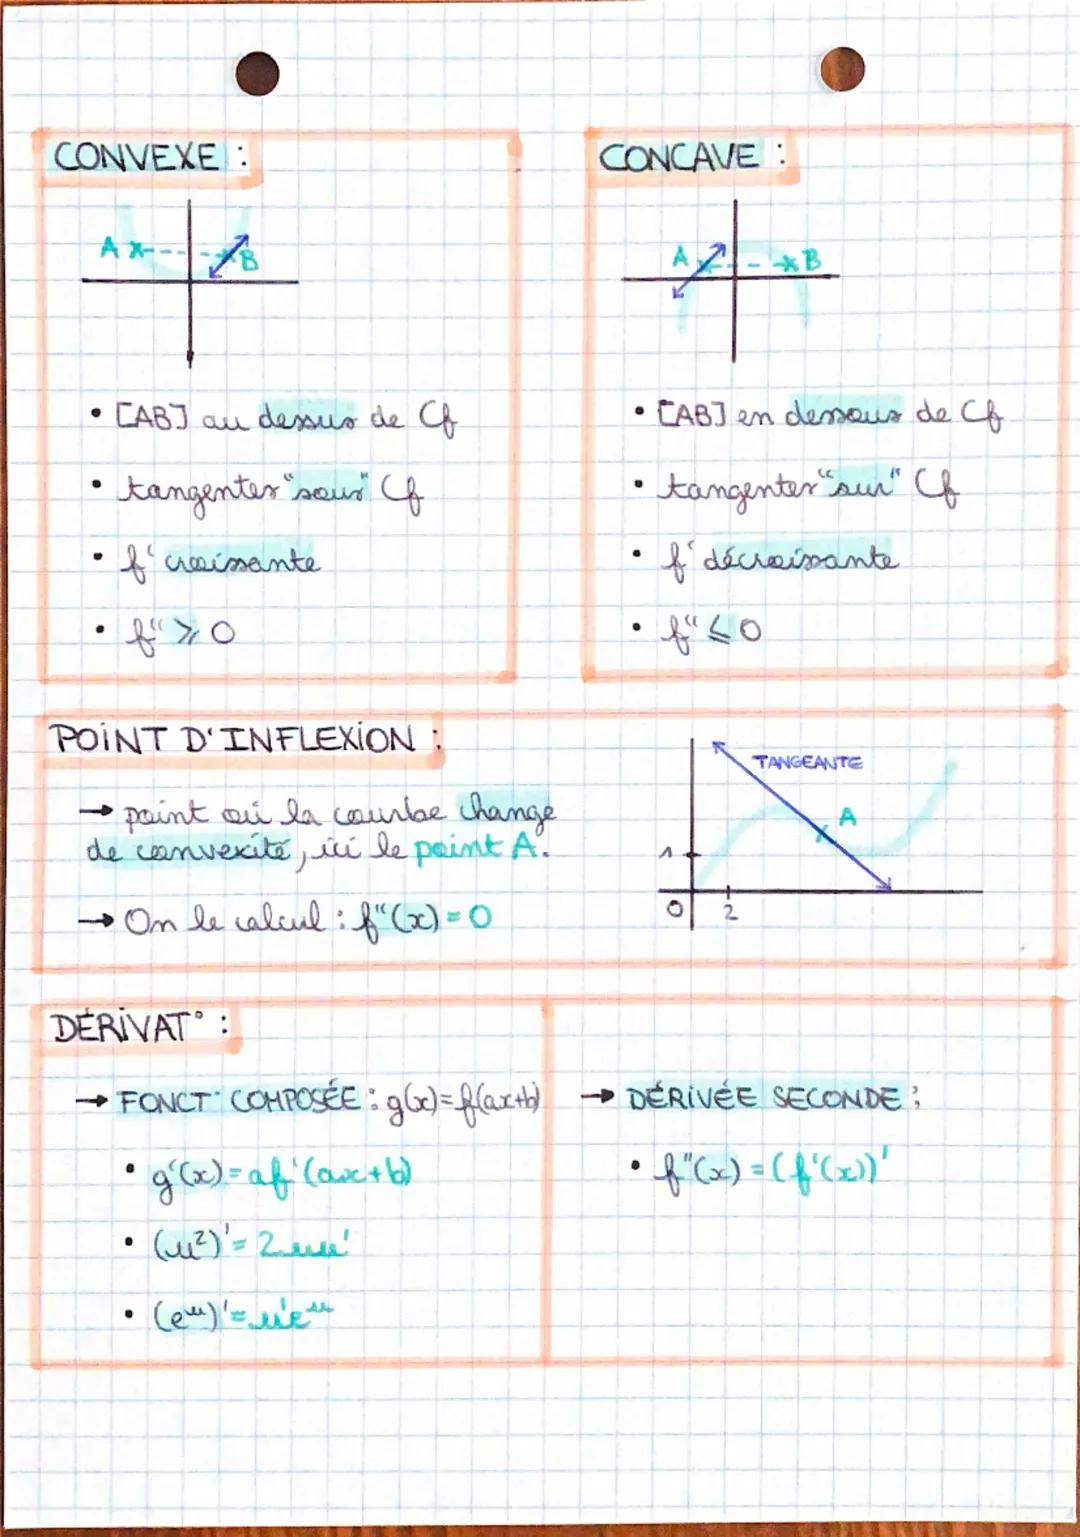 CONVEXE :
A
B
• [AB] au dessus de Cf
• tangentes "sous" Cf
• f' croissante
• f'' ⩾ 0
CONCAVE :
A
B
• [AB] en dessous de Cf
• tangentes "sur" Cf
• f' décroissante
• f'' ⩽ 0
POINT D'INFLEXION :
→ point où la courbe change
de convexité, ici le point A.
→ On le calcul : f''(x) = 0
TANGEANTE
A
1
0
2
DÉRIVAT° :
→ FONCT° COMPOSÉE : g(x)=f(ax+b)
• g'(x) = af'(ax+b)
• (u²)' = 2uu'
• (eᵘ)' = u'eᵘ
→ DÉRIVÉE SECONDE :
• f''(x) = (f'(x))'